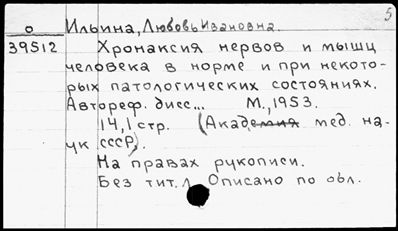 5
о Ильина, Любовь Ивановна.
39512 Хронаксия нервов и мышц
человека в норме и при некото-
рых патологических состояниях.
Автореф. дисс... М., 1953.
14,1 стр. (Академия мед. на-
ук СССР).
На правах рукописи.
Без тит. л. Описано по обл.